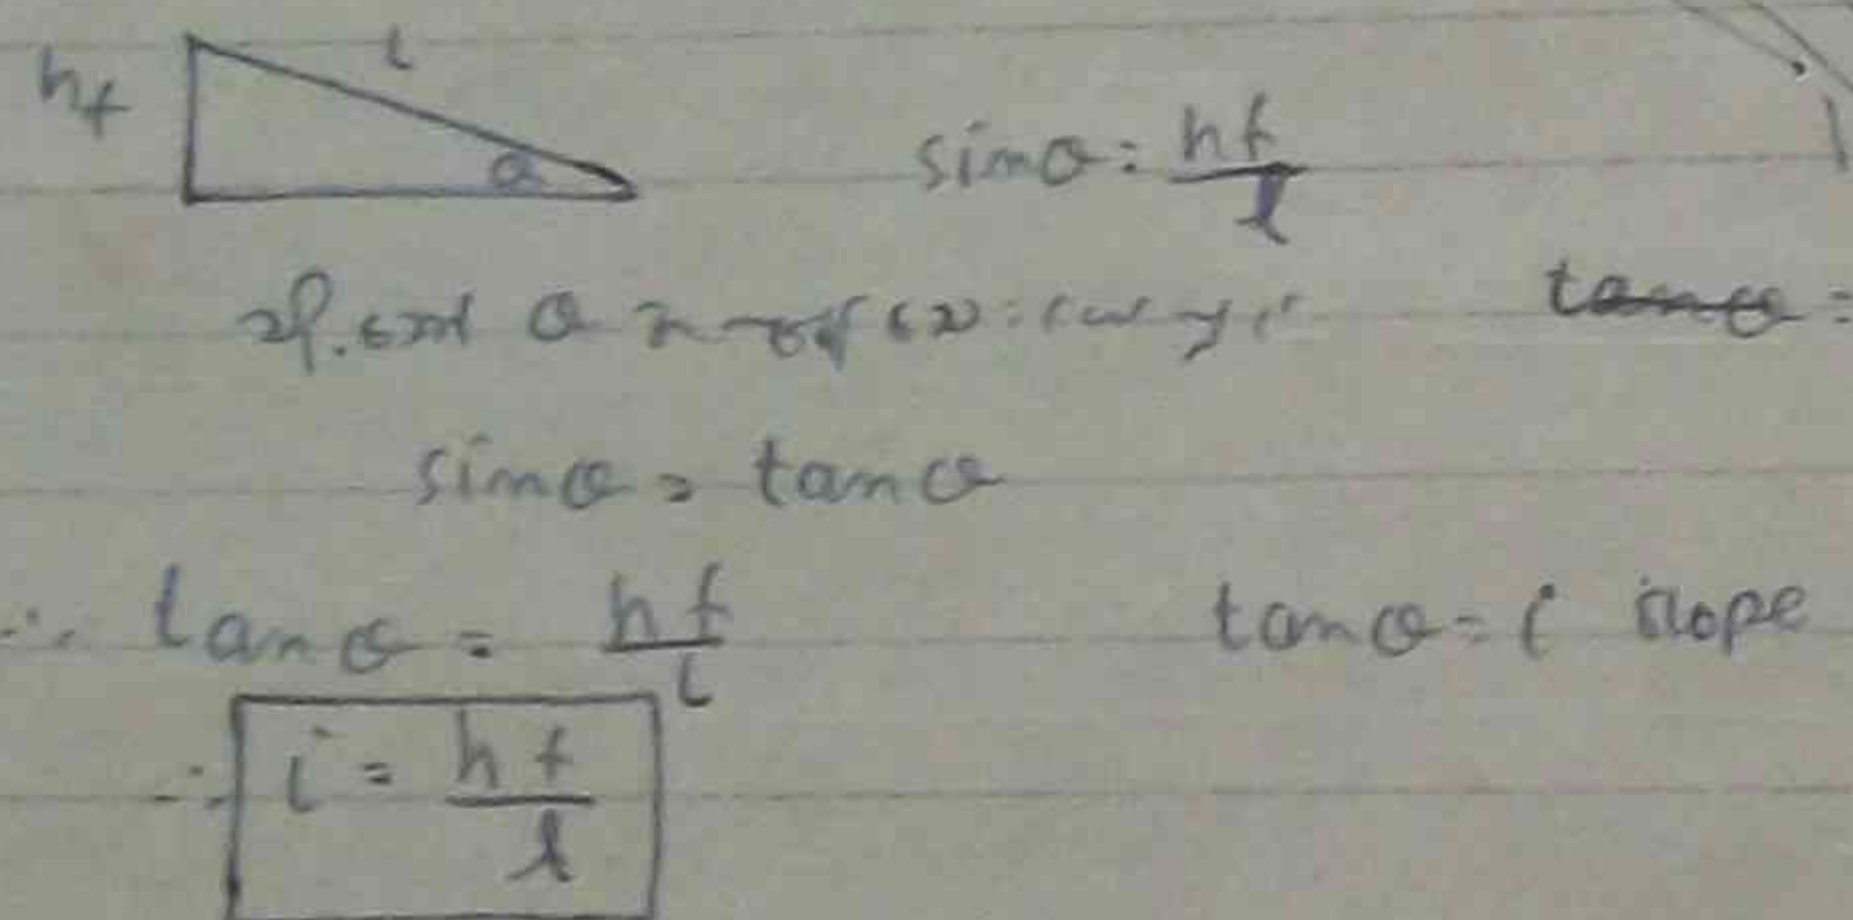 hf
l
θ
sinθ = hf/l
θ
tanθ =
sinθ = tanθ
∴ tanθ = hf/l
tanθ = i slope
∴ i = hf/l